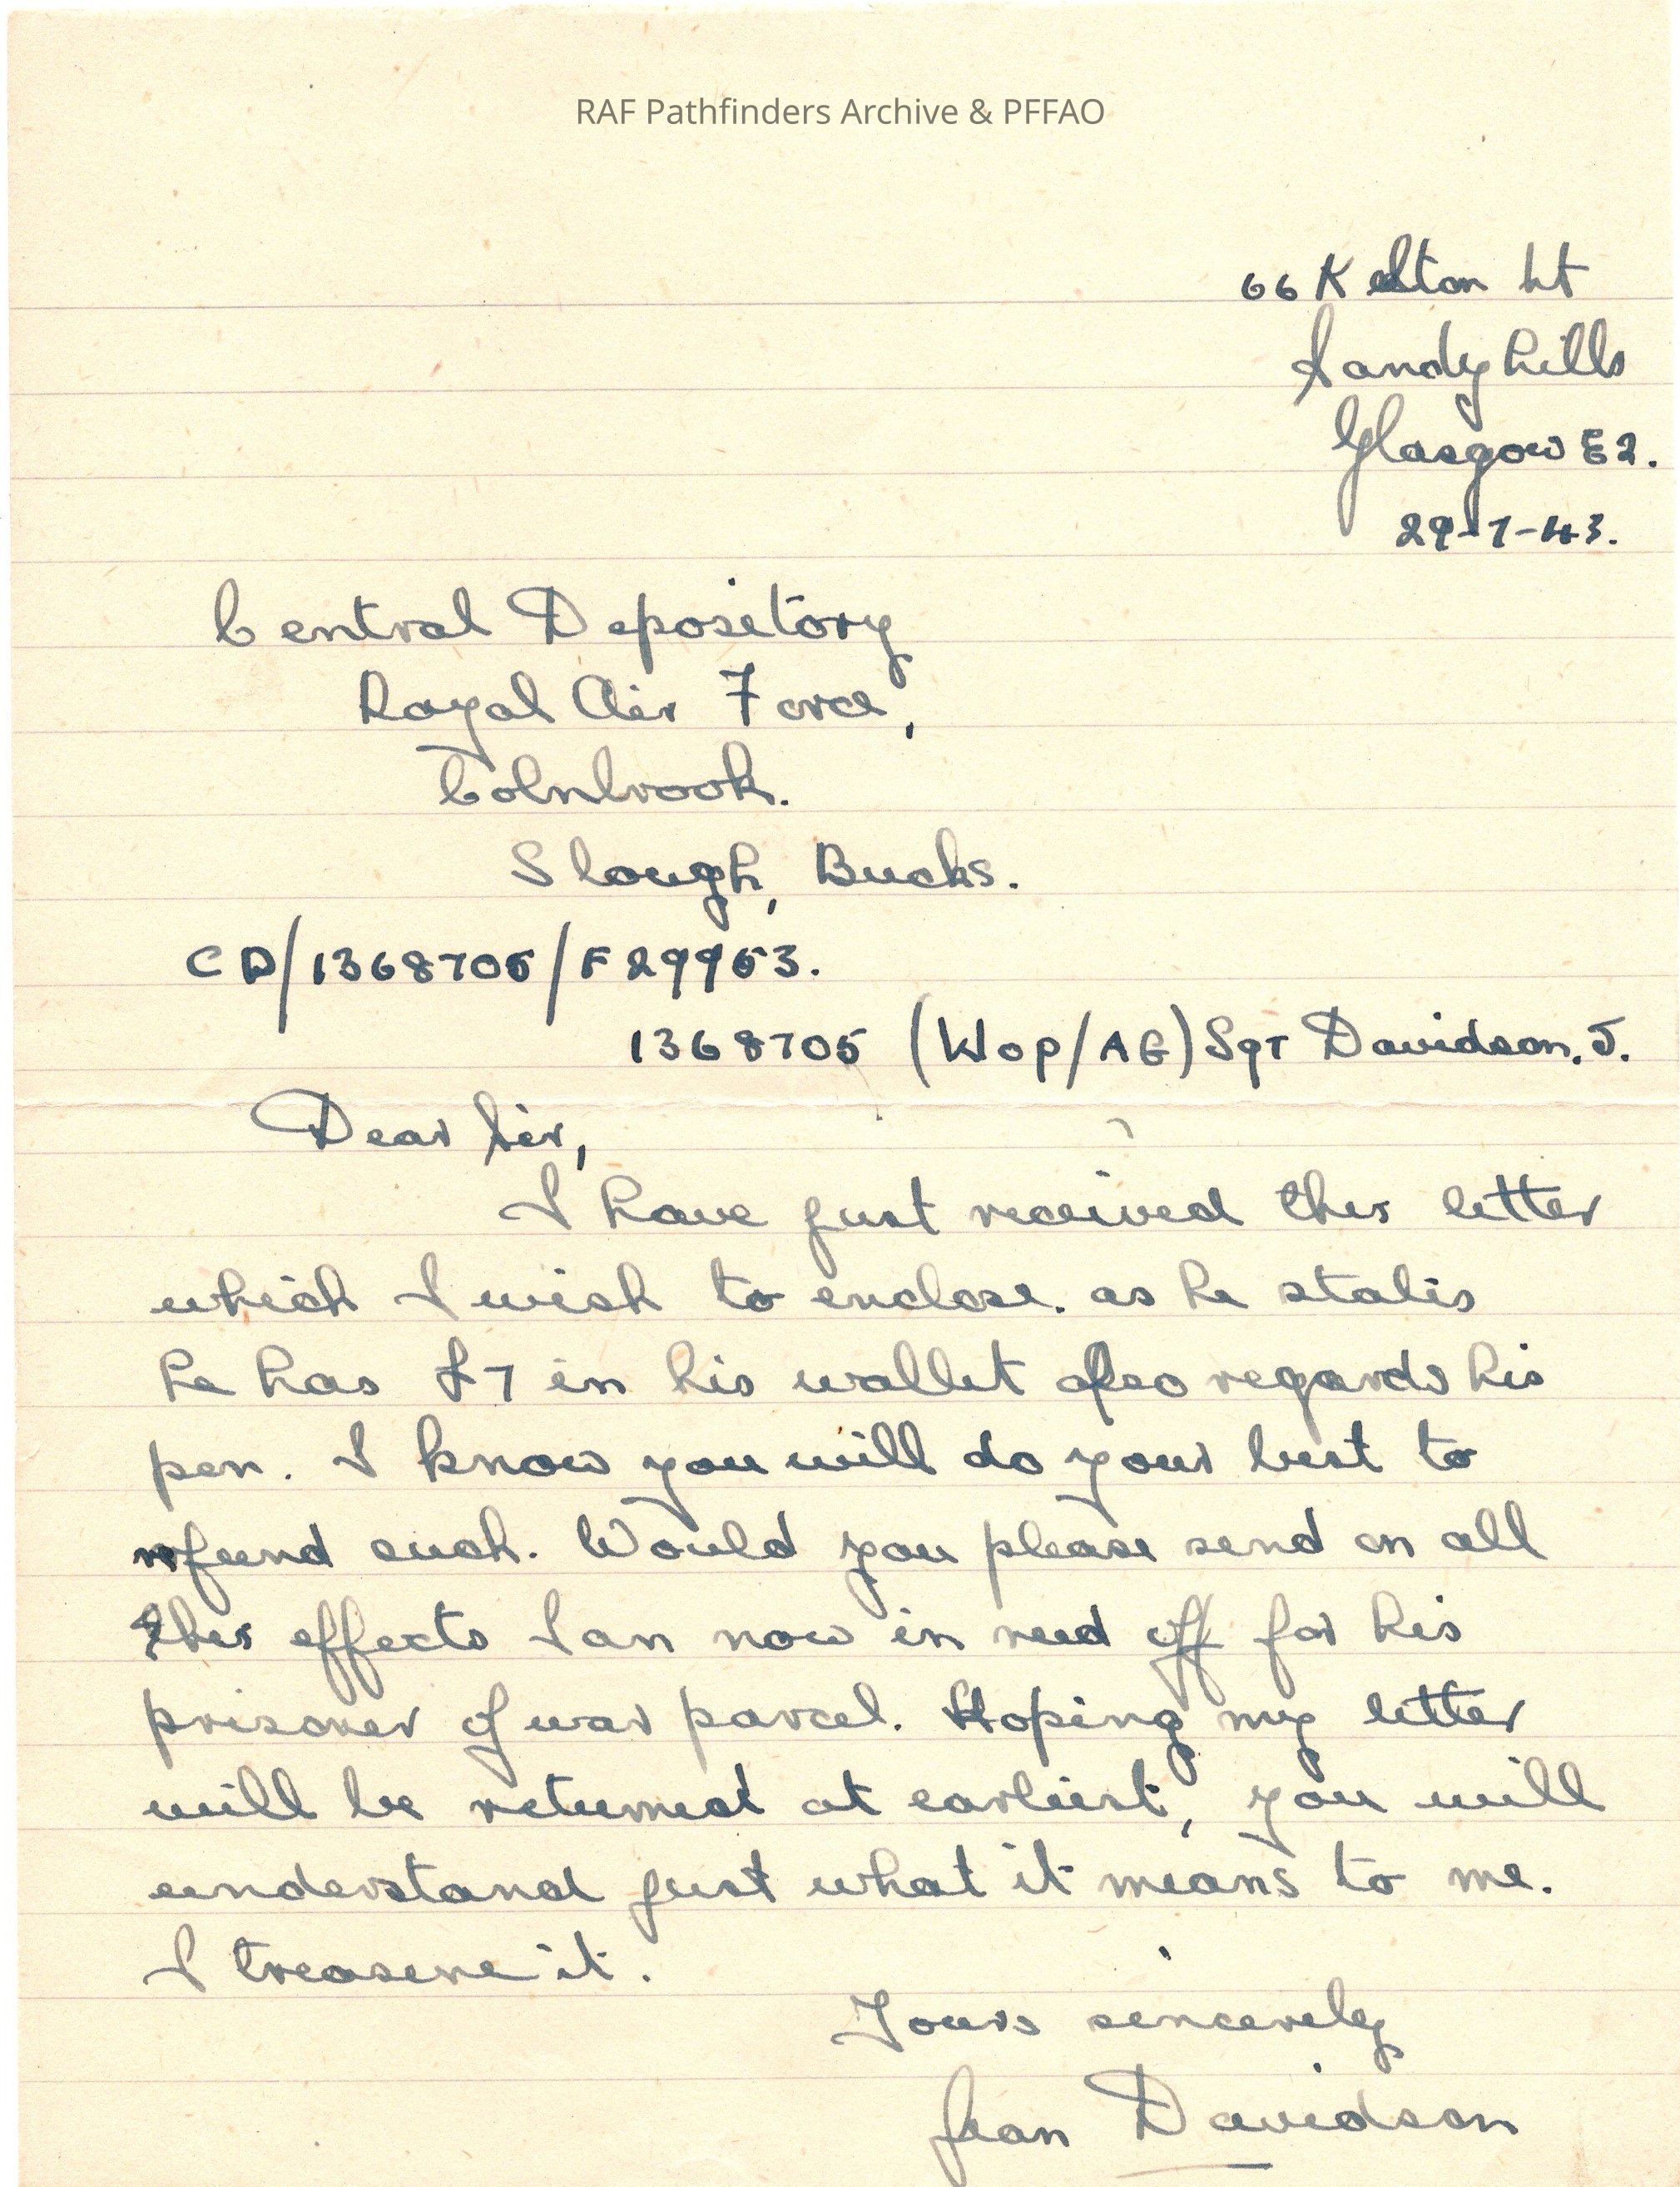 RAF Pathfinders Archive & PFFAO
66 Kelton St
Sandyhills
Glasgow E2.
29-7-43.
Central Depository
Royal Air Force,
Colnbrook.
Slough, Bucks.
CD/1368705/F29953.
1368705 (Wop/AG) Sgt Davidson. J.
Dear Sir,
I have just received this letter
which I wish to enclose. as he states
he has £7 in his wallet also regards his
pen. I know you will do your best to
refund such. Would you please send on all
this effects I am now in need off for his
prisoner of war parcel. Hoping my letter
will be returned at earliest, you will
understand just what it means to me.
I treasure it.
Yours sincerely
Jean Davidson